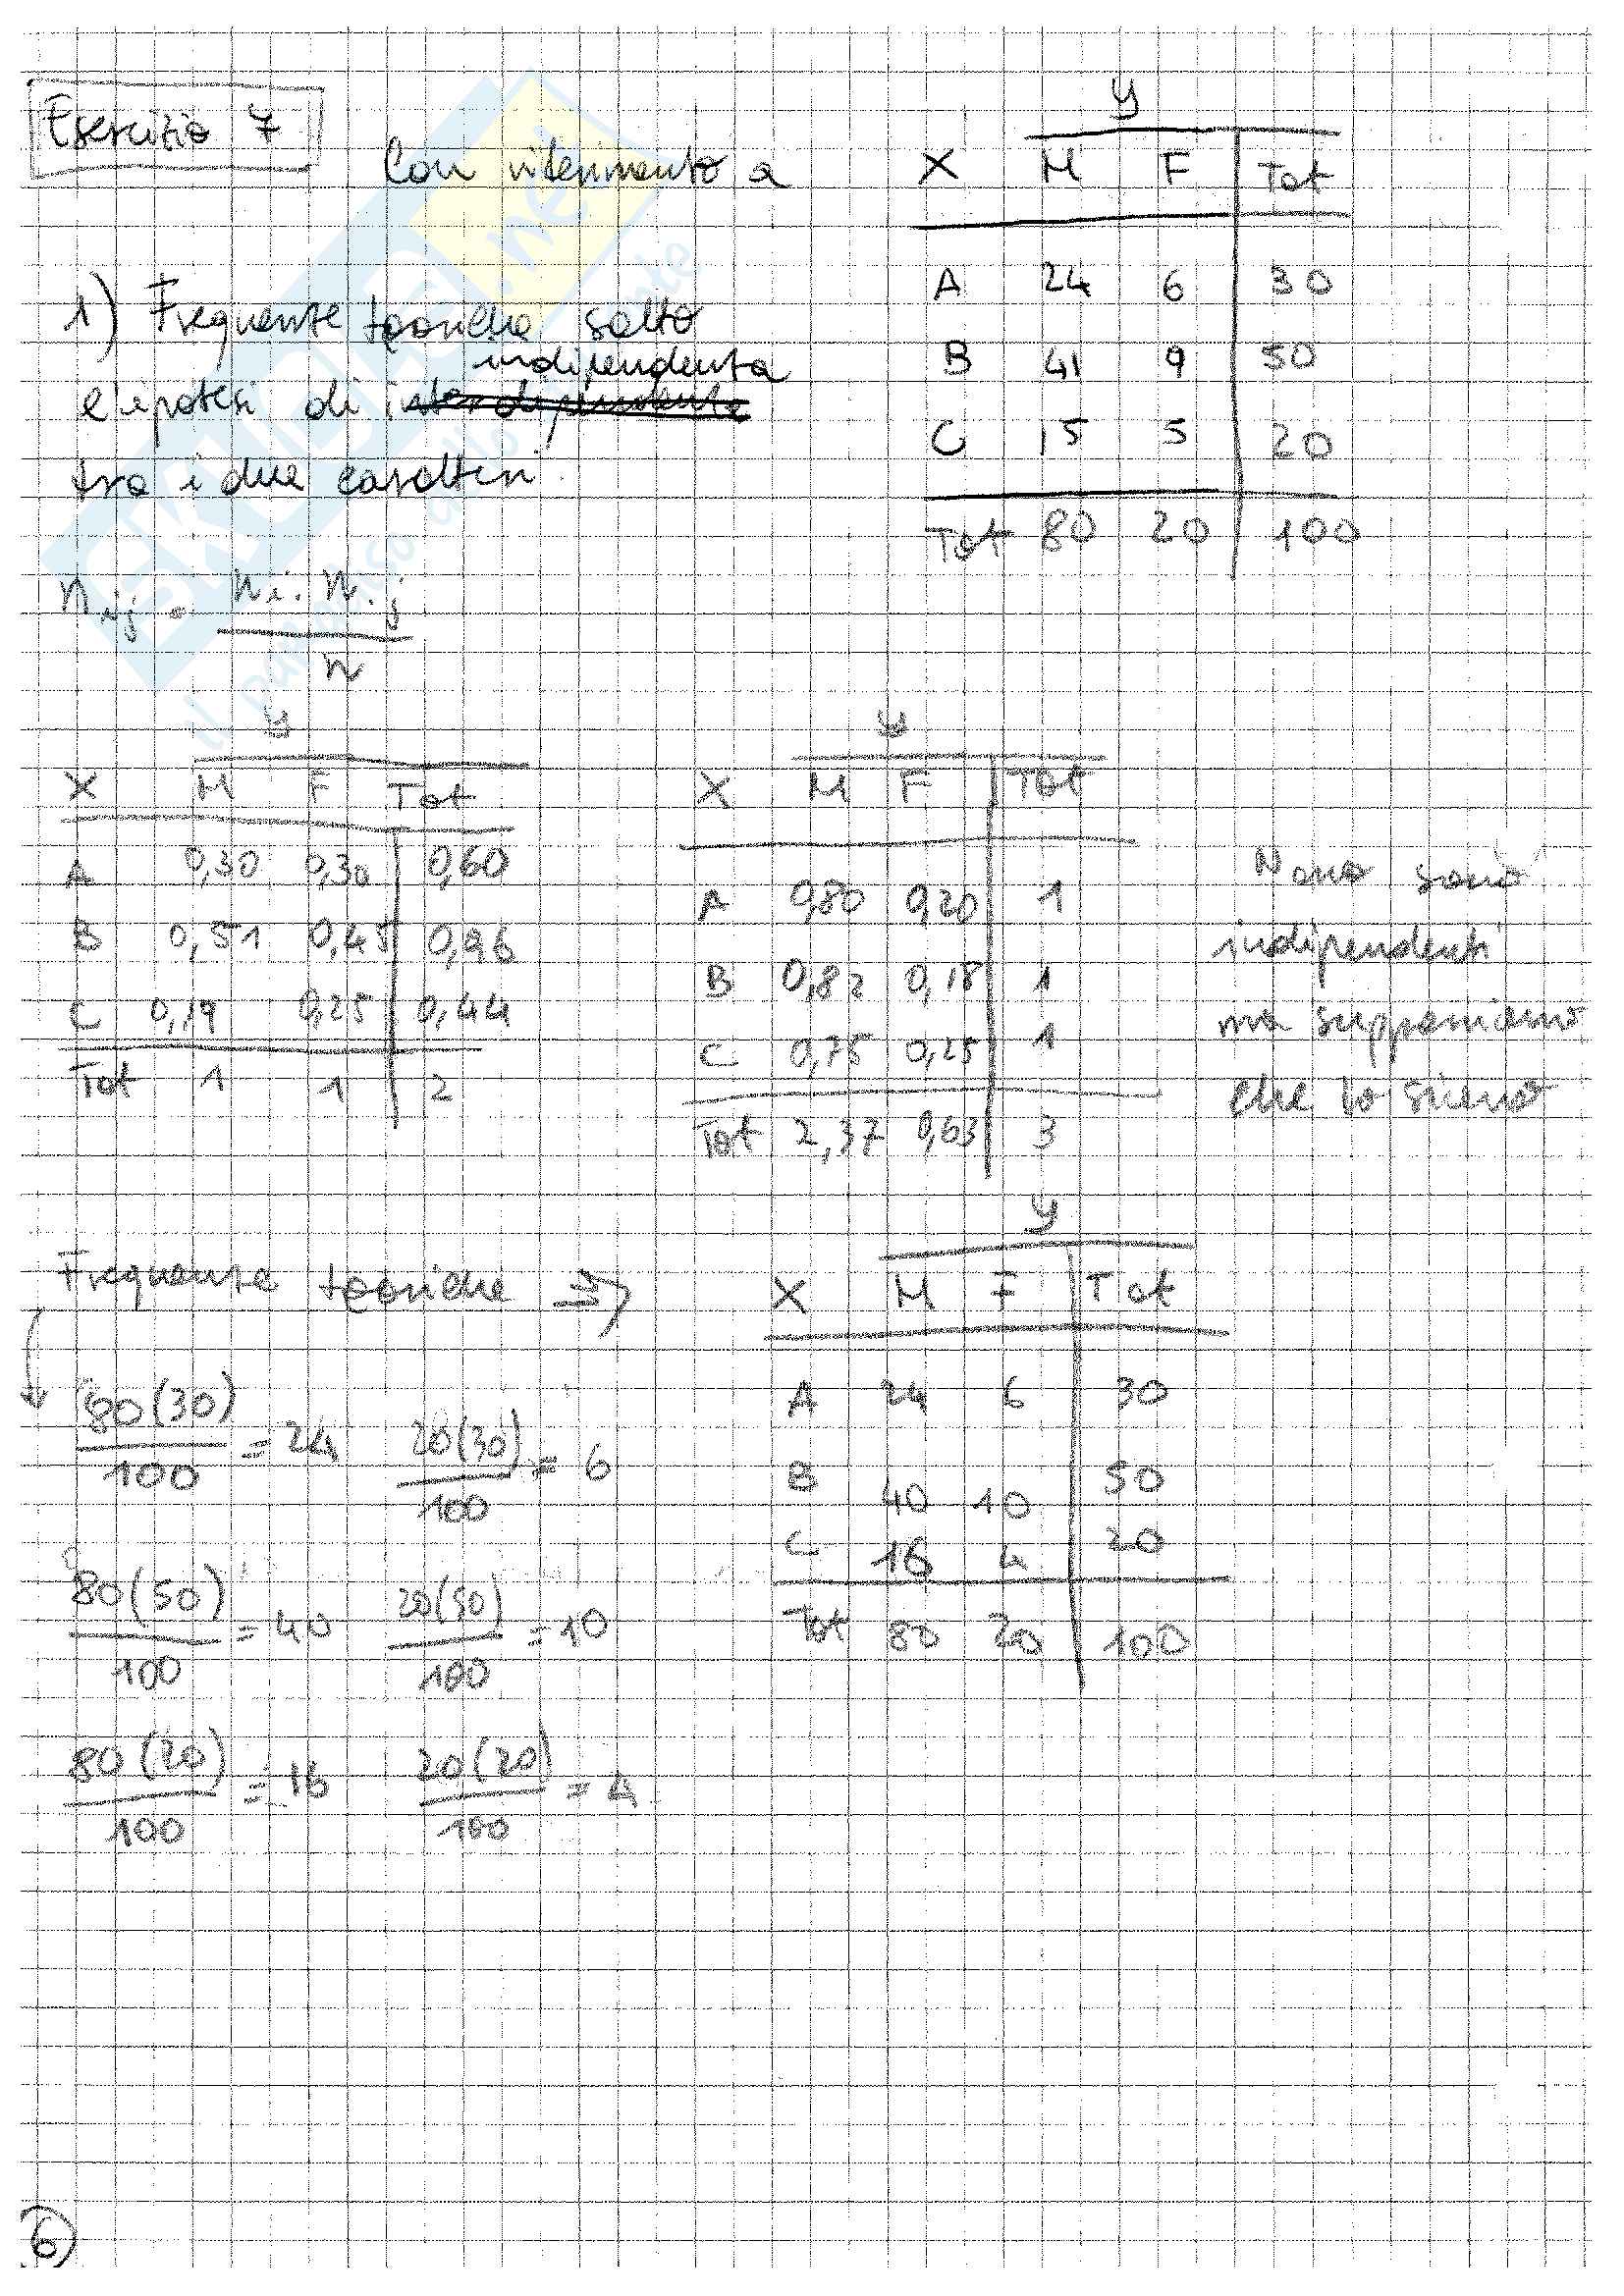 Esercizio 7
Con riferimento a
y
X M F Tot
A 24 6 30
B 41 9 50
C 15 5 20
Tot 80 20 100
1) Frequenze teoriche sotto
indipendenza
l'ipotesi di interdipendenza
tra i due caratteri.
nij = ni. n.j
n
y
X M F Tot
A 0,30 0,30 0,60
B 0,51 0,45 0,96
C 0,19 0,25 0,44
Tot 1 1 2
y
X M F Tot
A 0,80 0,20 1
B 0,82 0,18 1
C 0,75 0,25 1
Tot 2,37 0,63 3
sono
indipendenti
ma supponiamo
che lo siano
Frequenze teoriche =>
80(30)
100 = 24
20(30)
100 = 6
80(50)
100 = 40
20(50)
100 = 10
80(20)
100 = 16
20(20)
100 = 4
y
X M F Tot
A 24 6 30
B 40 10 50
C 16 4 20
Tot 80 20 100
6